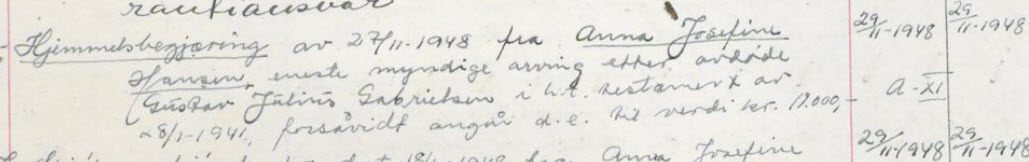 rantiansvar
Hjemmelsbegjæring av 27/11-1948 fra Anna Josefine 29/11-1948 29/11-1948
Hansen, eneste myndige arving etter avdøde
Gustav Julius Gabrielsen i h.t. testament av A-XI
28/1-1941, forsåvidt angår d.e. til verdi kr. 17.000,-
18/1-1948 fra Anna Josefine 29/11-1948 29/11-1948